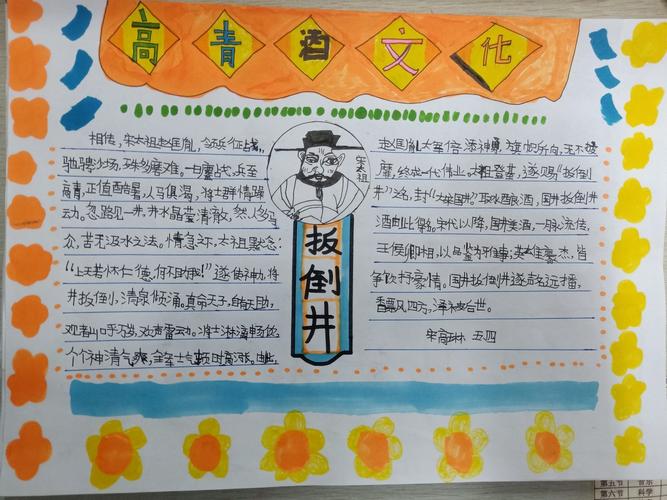 高青酒文化
相传,宋太祖赵匡胤,领兵征战,
驰骋沙场,殊多磨难。一日鏖战,兵至
高青,正值酷暑,人马俱渴,将士群情躁
动。忽路见一井,井水晶莹清澈,然人多马
众,苦无汲水之法。情急之下,太祖默念:
“上天若怀仁德,何不助我!”遂使神力,将
井扳倒,清泉倾涌。真命天子,自有天助,
观者山呼万岁,欢声雷动。将士淋漓畅饮,
个个神清气爽,全军士气顿时高涨。由此,
宋太祖
扳倒井
赵匡胤大军倍添神勇,旗帜所向,无不披
靡,终成一代伟业。太祖登基,遂赐“扳倒
井”之名,封“大宋国井”。取水酿酒,国井扳倒井
酒由此得名。宋代以降,国井美酒,一脉流传,
王侯卿相,以品鉴为平雅事;英雄豪杰,皆
争饮抒豪情。国井扳倒井遂声名远播,
香飘四方,泽被后世。
五四
第五节 音乐
第六节 科学